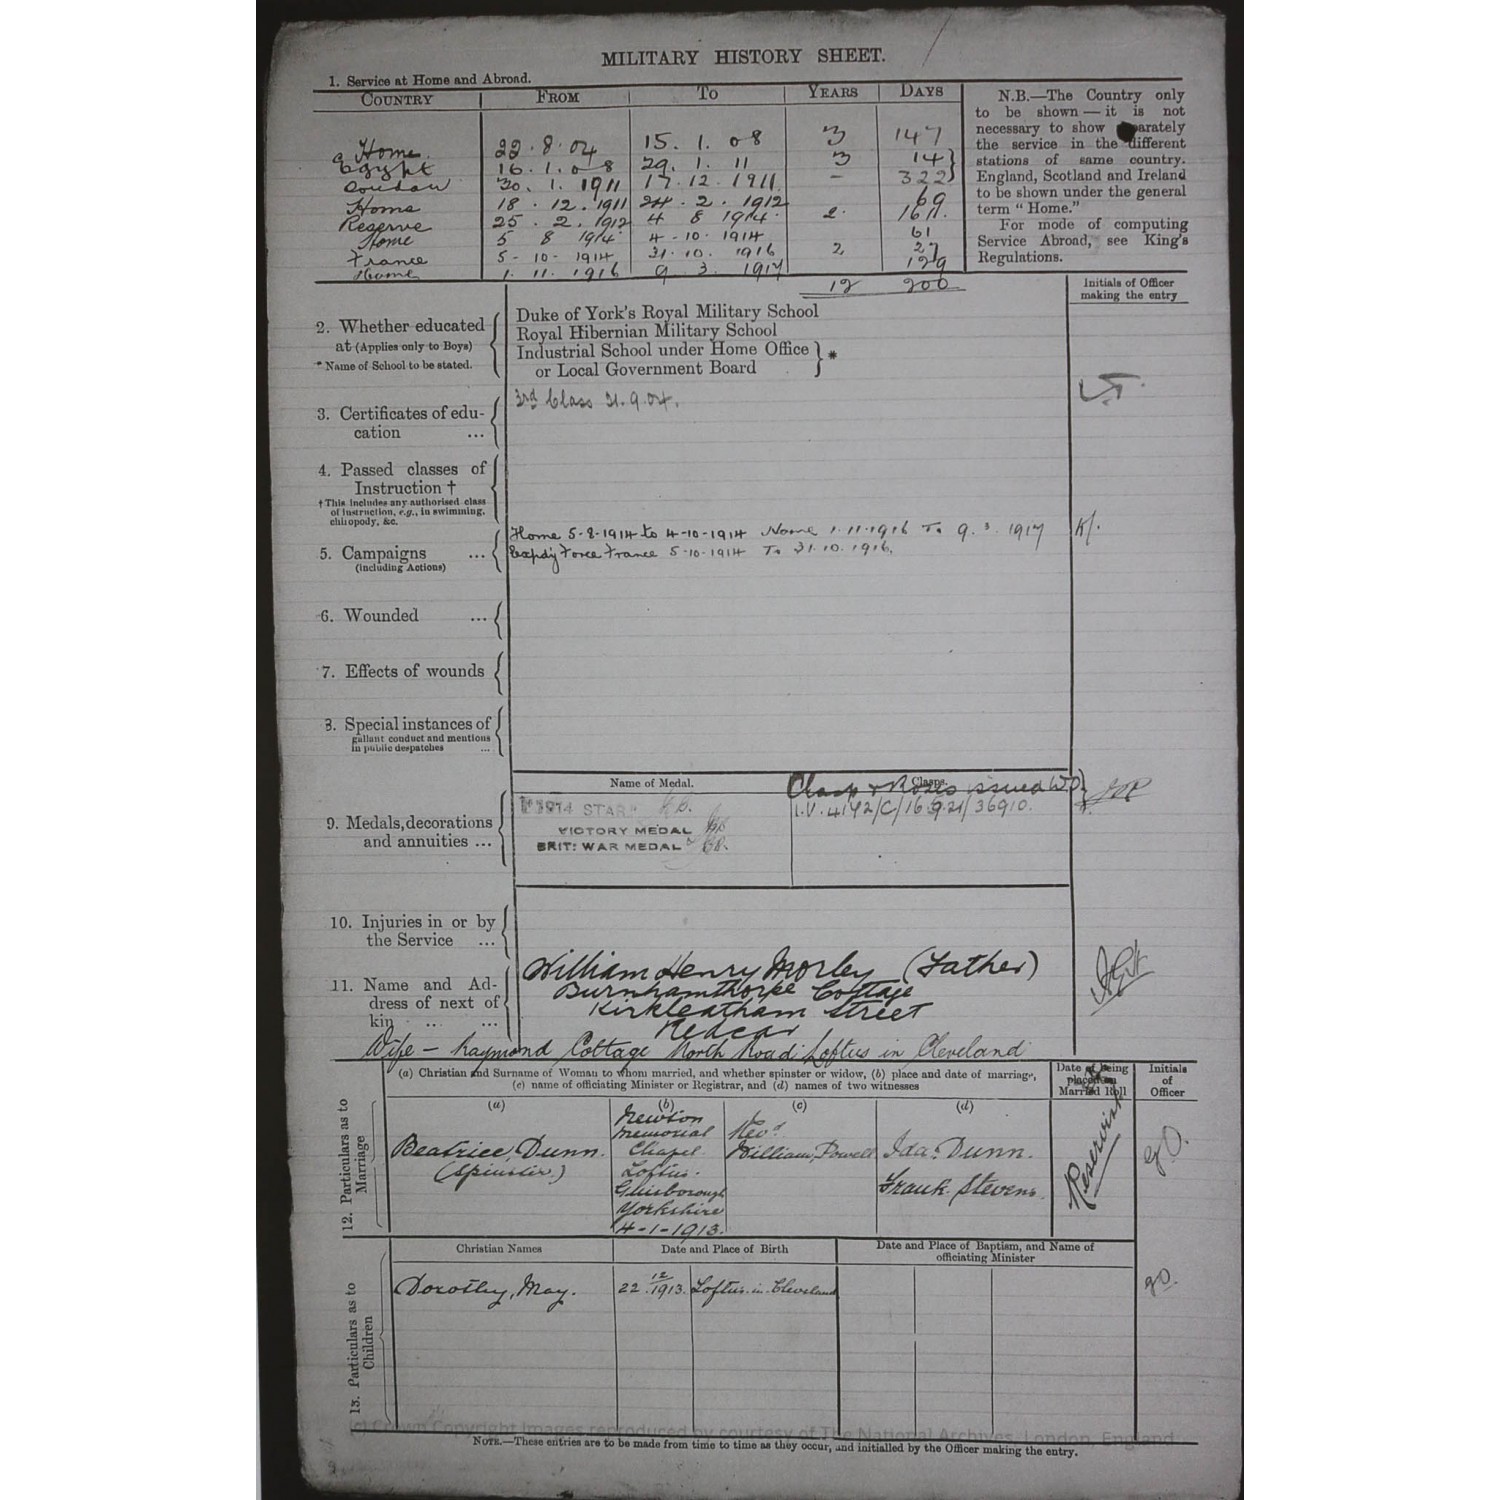 MILITARY HISTORY SHEET.
1. Service at Home and Abroad.
COUNTRY FROM TO YEARS DAYS
Home 22.8.04 15.1.08 3 147
Egypt 16.1.08 29.1.11 3 14
Soudan 30.1.1911 17.12.1911 - 322
Home 18.12.1911 24.2.1912 69
Reserve 25.2.1912 4 8 1914 2 161
Home 5 8 1914 4-10-1914 61
France 5-10-1914 31.10.1916 2 27
Home 1.11.1916 9.3.1917 129
12 200
N.B.—The Country only
to be shown — it is not
necessary to show parately
the service in the different
stations of same country.
England, Scotland and Ireland
to be shown under the general
term "Home."
For mode of computing
Service Abroad, see King's
Regulations.
Initials of Officer
making the entry
2. Whether educated
at (Applies only to Boys)
* Name of School to be stated.
Duke of York's Royal Military School
Royal Hibernian Military School
Industrial School under Home Office
or Local Government Board } *
3. Certificates of edu-
cation ...
3rd Class 21.9.04.
4. Passed classes of
Instruction †
† This includes any authorised class
of instruction, e.g., in swimming,
chiropody, &c.
5. Campaigns ...
(including Actions)
Home 5-8-1914 to 4-10-1914 Home 1.11.1916 To 9.3.1917
Expdy Force France 5-10-1914 To 31.10.1916.
6. Wounded ...
7. Effects of wounds
8. Special instances of
gallant conduct and mentions
in public despatches ...
Name of Medal. Clasps.
Clasp & Roses issued
I.V. 4142/C/16.9.21/36910.
9. Medals, decorations
and annuities ...
1914 STAR
VICTORY MEDAL
BRIT: WAR MEDAL
10. Injuries in or by
the Service ...
11. Name and Ad-
dress of next of
kin ... ...
William Henry Morley (Father)
Burnhamthorpe Cottage
Kirkleatham Street
Redcar
Wife — Raymond Cottage North Road Loftus in Cleveland
12. Particulars as to
Marriage
(a) Christian and Surname of Woman to whom married, and whether spinster or widow, (b) place and date of marriage,
(c) name of officiating Minister or Registrar, and (d) names of two witnesses
Date of being
placed on
Married Roll
Initials
of
Officer
(a) (b) (c) (d)
Beatrice, Dunn.
(Spinster.)
Newton
Memorial
Chapel
Loftus.
Guisborough
Yorkshire
4-1-1913.
Revd.
William, Powell
Ida. Dunn.
Frank. Stevens.
Reservist
13. Particulars as to
Children
Christian Names Date and Place of Birth
Date and Place of Baptism, and Name of
officiating Minister
Dorothy, May. 22.12/1913. Loftus. in. Cleveland
(c) Crown Copyright Images reproduced by courtesy of The National Archives, London, England
NOTE.—These entries are to be made from time to time as they occur, and initialled by the Officer making the entry.